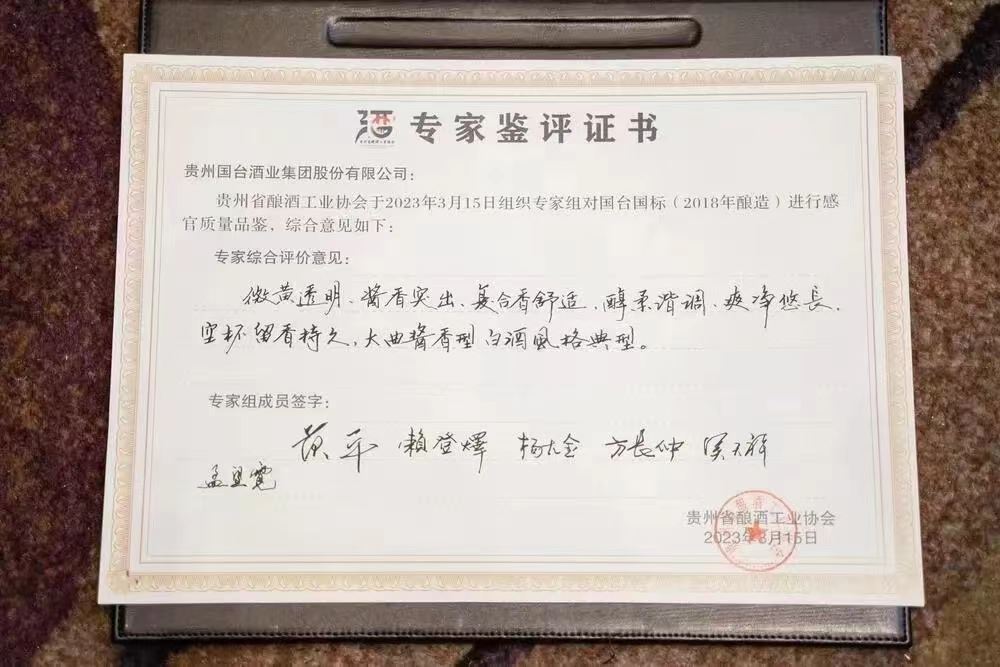 专家鉴评证书
贵州国台酒业集团股份有限公司：
贵州省酿酒工业协会于2023年3月15日组织专家组对国台国标（2018年酿造）进行感
官质量品鉴，综合意见如下：
专家综合评价意见：
微黄透明、酱香突出、复合香舒适、醇柔谐调、爽净悠长、
空杯留香持久，大曲酱香型白酒风格典型。
专家组成员签字：
黄平 赖登燡 杨大金 方长仲
孟望霓
贵州省酿酒工业协会
2023年3月15日